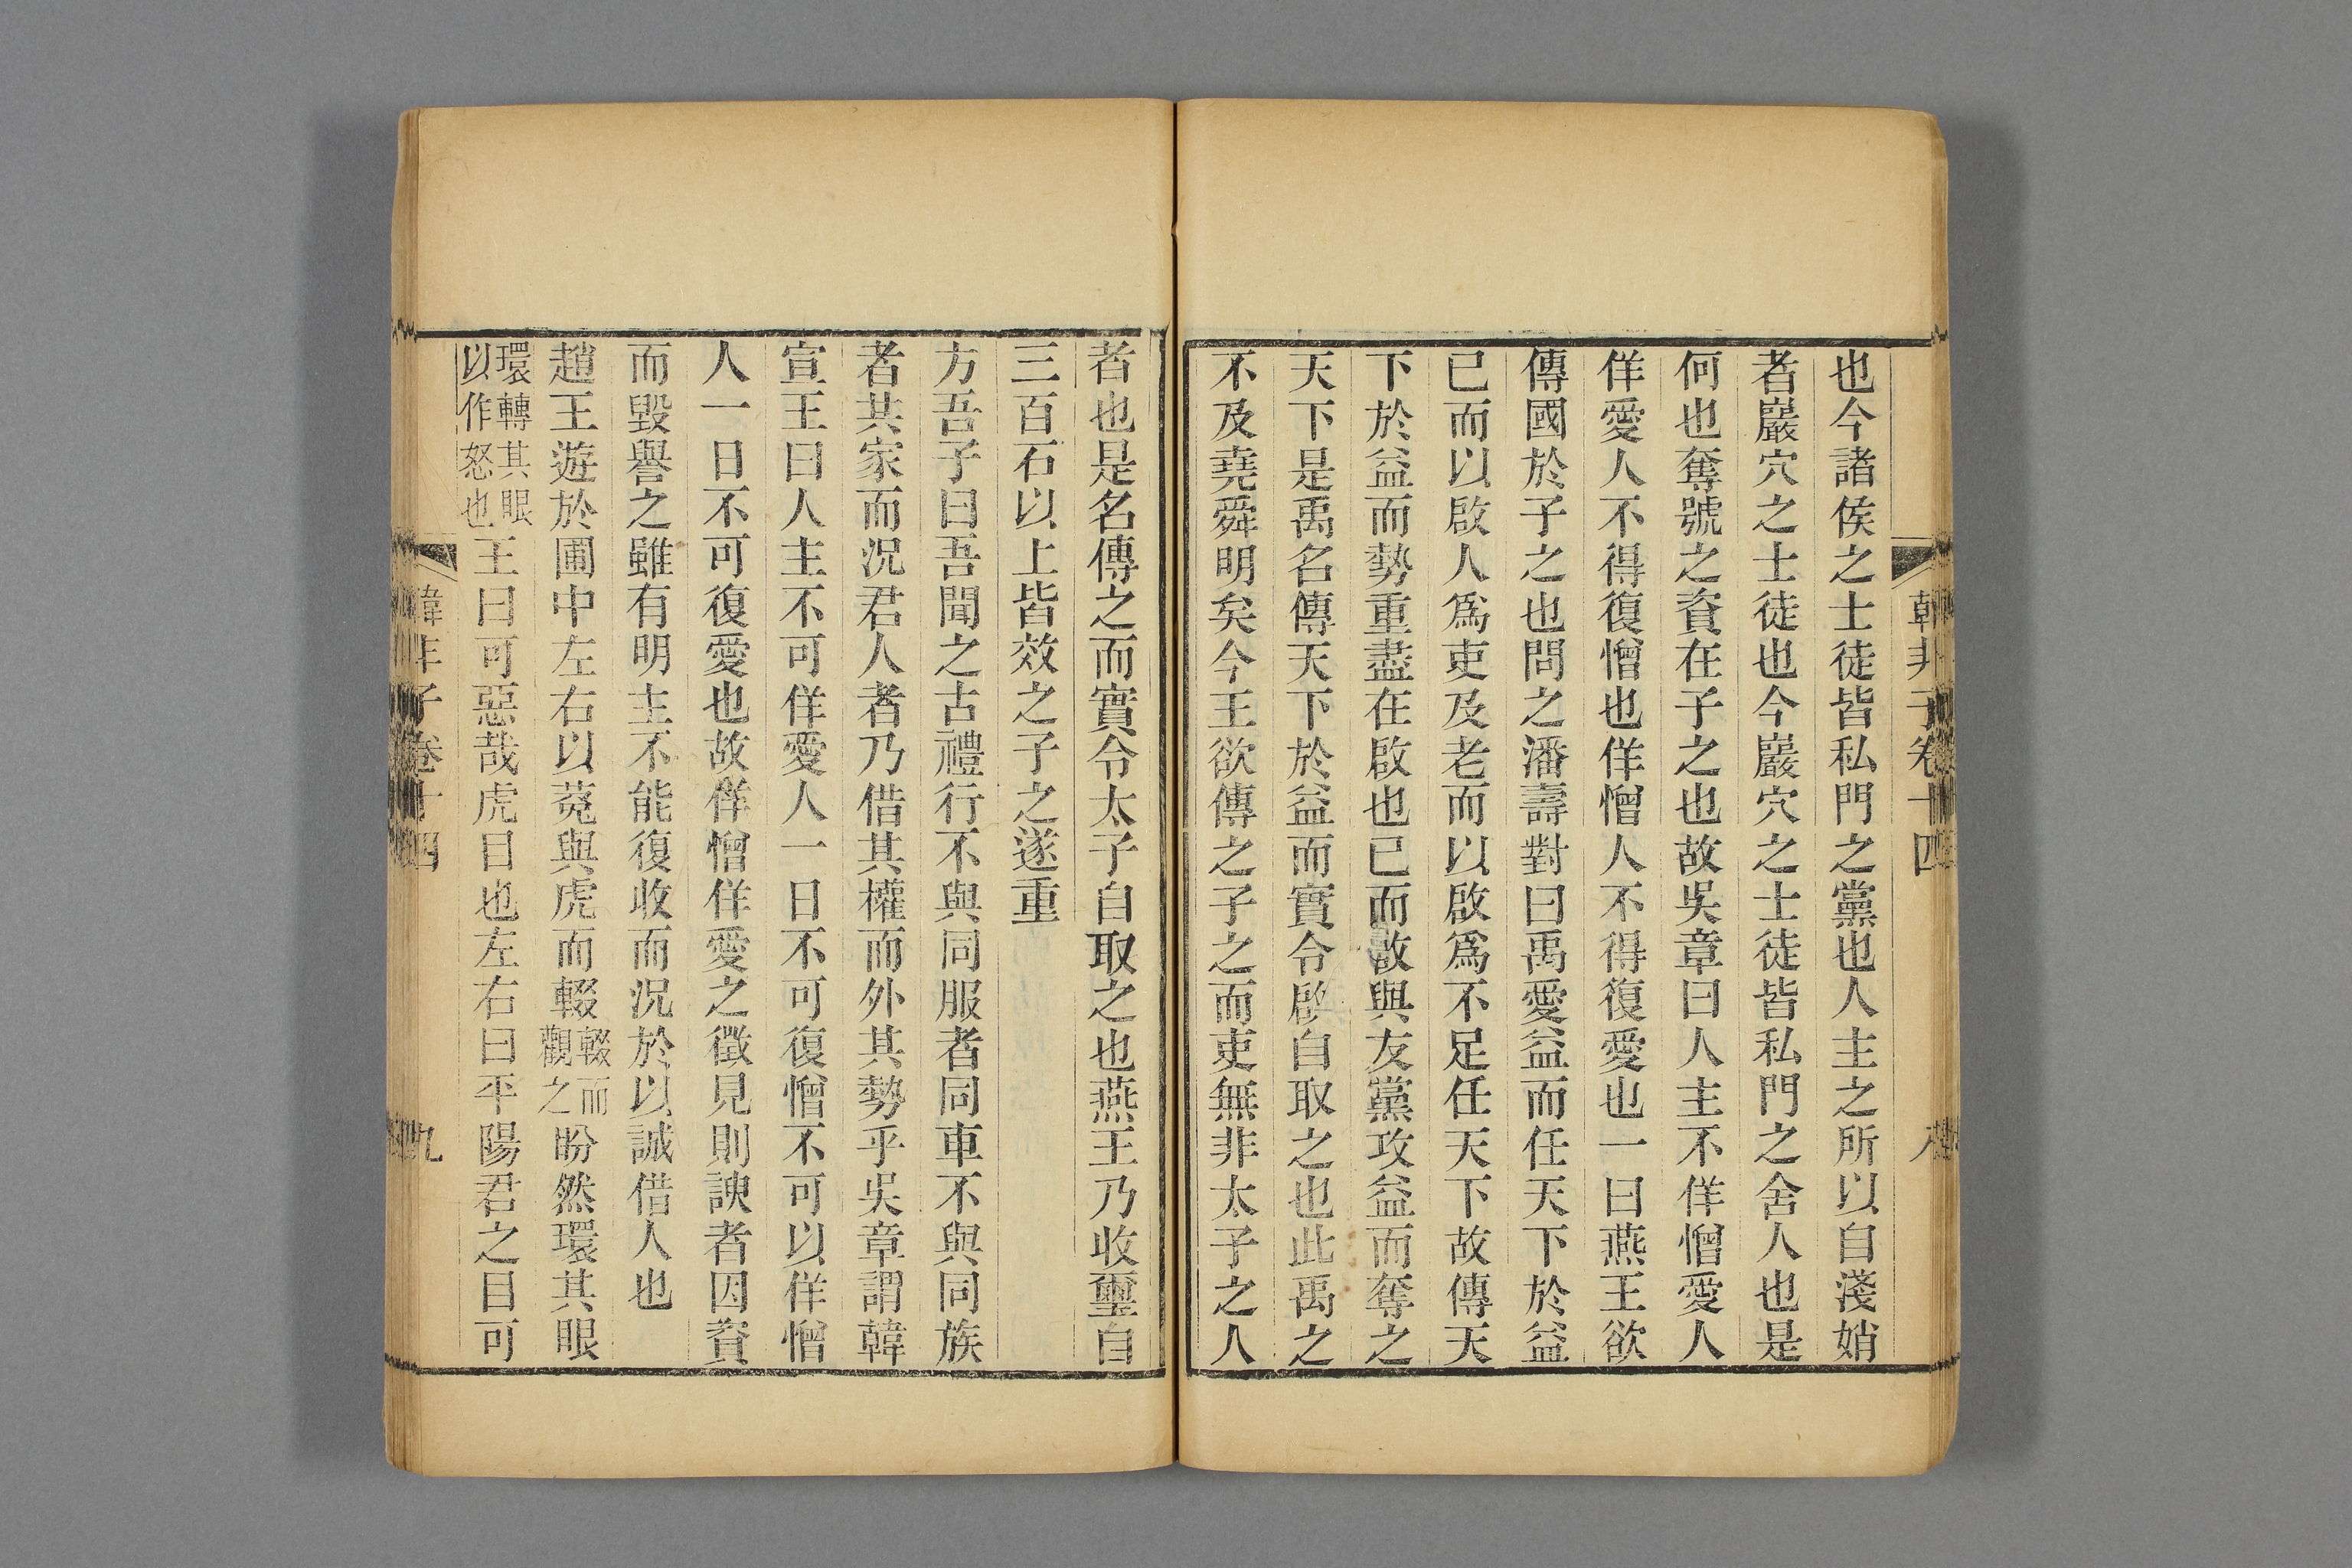 韓非子卷十四
也今諸侯之士徒皆私門之黨也人主之所以自淺娋
者巖穴之士徒也今巖穴之士徒皆私門之舍人也是
何也奪號之資在子之也故吳章曰人主不佯憎愛人
佯愛人不得復憎也佯憎人不得復愛也一曰燕王欲
傳國於子之也問之潘壽對曰禹愛益而任天下於益
已而以啟人爲吏及老而以啟爲不足任天下故傳天
下於益而勢重盡在啟也已而啟與友黨攻益而奪之
天下是禹名傳天下於益而實令啟自取之也此禹之
不及堯舜明矣今王欲傳之子之而吏無非太子之人
者也是名傳之而實令太子自取之也燕王乃收璽自
三百石以上皆效之子之遂重
方吾子曰吾聞之古禮行不與同服者同車不與同族
者共家而況君人者乃借其權而外其勢乎吳章謂韓
宣王曰人主不可佯愛人一日不可復憎不可以佯憎
人一日不可復愛也故佯憎佯愛之徵見則諛者因資
而毀譽之雖有明主不能復收而況於以誠借人也
趙王遊於圃中左右以菟與虎而輟輟而觀之盼然環其眼
環轉其眼以作怒也王曰可惡哉虎目也左右曰平陽君之目可
韓非子卷十四
九